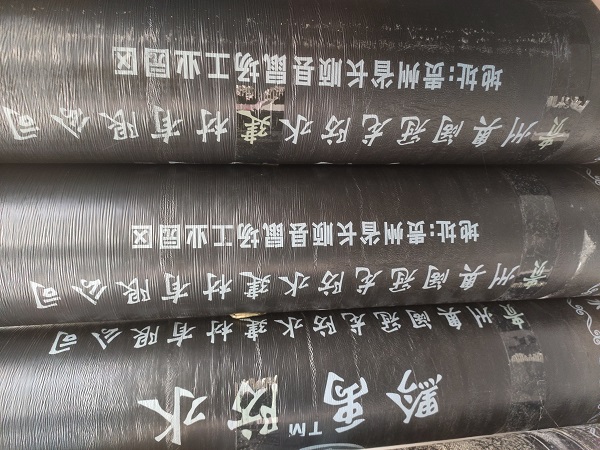 黔禹TM防水
贵州奥阔冠龙防水建材有限公司
贵州奥阔冠龙防水建材有限公司
地址:贵州省长顺县鼠场工业园区
贵州奥阔冠龙防水建材有限公司
地址:贵州省长顺县鼠场工业园区